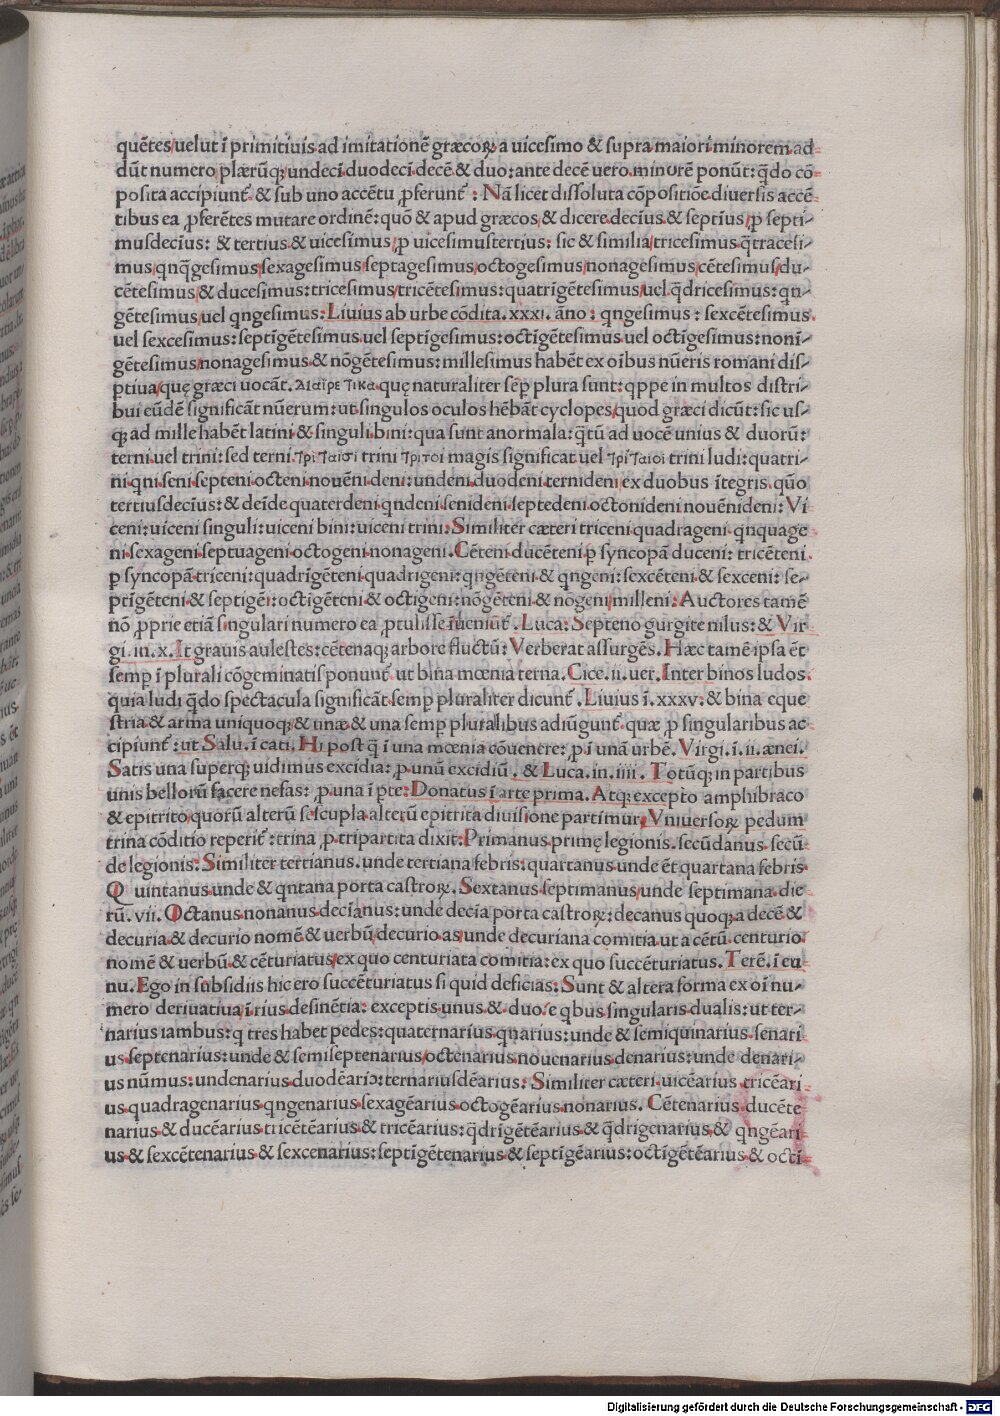 quētes/uelut ī primitiuis ad imitationē græcoꝝ a uicesimo & supra maiori minorem ad-
dūt numero plærūq; undeci duodeci decē & duo: ante decē uero minorē ponūt: q̄do cō-
posita accipiunt & sub uno accētu ꝓferunt: Nā licet dissoluta cōpositiōe diuersis accē-
tibus ea ꝓferētes mutare ordinē: quō & apud græcos & dicere decius & septius/ꝓ septi-
musdecius: & tertius & uicesimus/ꝓ uicesimustertius: sic & similia/tricesimus q̄tracesi-
mus/qnq̄gesimus/sexagesimus/septagesimus/octogesimus/nonagesimus/cētesimus/du-
cētesimus/& ducesimus: tricesimus/tricētesimus: quatrigētesimus/uel q̄dricesimus: qn-
gētesimus/uel qngesimus: Liuius ab urbe cōdita. xxxi. āno: qngesimus: sexcētesimus.
uel sexcesimus: septigētesimus uel septigesimus: octigētesimus uel octigesimus: noni-
gētesimus/nonagesimus & nōgētesimus: millesimus habēt ex oībus nūeris romani dis-
ptiua/quę græci uocāt. Διαιρετικα quę naturaliter sēp plura sunt: qppe in multos distri-
bui eūdē significāt nūerum: ut singulos oculos hēbāt cyclopes/quod græci dicūt: sic us-
q; ad mille habēt latini & singuli bini: qua sunt anormala: q̄tū ad uocē unius & duorū:
terni uel trini: sed terni τριταισι trini τριτοι magis significat uel τριταιοι trini ludi: quatri-
ni qni seni septeni octeni nouēni deni: undeni duodeni ternideni ex duobus ītegris quō
tertiusdecius: & deīde quaterdeni qndeni senideni septedeni octonideni nouēnideni: Vi
ceni: uiceni singuli: uiceni bini: uiceni trini: Similiter cæteri triceni quadrageni qnquage
ni sexageni septuageni octogeni nonageni. Cēteni ducēteni p syncopā duceni: tricēteni.
p syncopā triceni: quadrigēteni quadrigeni: qngēteni & qngeni: sexcēteni & sexceni: se-
ptigēteni & septigēi: octigēteni & octigeni: nōgēteni & nōgeni/milleni: Auctores tamē
nō ꝓprie etiā singulari numero ea ꝓtulisse īueniūt. Luca: Septeno gurgite nilus: & Vir
gi. in. x. It grauis aulestes: cētenaq; arbore fluctū: Verberat assurgēs. Hæc tamē ipsa ēt
semp ī plurali cōgeminatis ponunt ut bina mœnia terna. Cice. ii. uer. Inter binos ludos.
quia ludi q̄do spectacula significāt semp pluraliter dicunt. Liuius ī. xxxv. & bina eque
stria & arma uniquoq; & unæ & una semp pluralibus adiūgunt quæ ꝓ singularibus ac-
cipiunt: ut Salu. ī cati. Hi post q̄ ī una mœnia cōuenere: ꝓ ī unā urbē. Virgi. ī. ii. ænei.
Satis una superq; uidimus excidia: ꝓ unū excidiū. & Luca. in. iiii. Totūq; in partibus
unis bellorū facere nefas: ꝓ una ī pte: Donatus ī arte prima. Atq; excepto amphibraco
& epitrito/quorū alterū sescupla alterū epitrita diuisione partimur/Vniuersoꝝ pedum
trina cōditio reperit: trina ꝓ tripartita dixit: Primanus primę legionis. secūdanus secū-
de legionis: Similiter tertianus. unde tertiana febris: quartanus unde ēt quartana febris.
Quintanus unde & qntana porta castroꝝ. Sextanus septimanus/unde septimana die
rū. vii. Octanus nonanus decianus: unde decia porta castroꝝ: decanus quoq; a decē &
decuria & decurio nomē & uerbū decurio as/unde decuriana comitia ut a cētū. centurio
nomē & uerbū & cēturiatus/ex quo centuriata comitia: ex quo succēturiatus. Terē. ī eu
nu. Ego in subsidiis hic ero succēturiatus si quid deficias: Sunt & altera forma ex oī nu-
mero deriuatiua ī rius desinētia: exceptis unus & duo/e qbus singularis dualis: ut ter-
narius iambus: q tres habet pedes: quaternarius qnarius: unde & semiquinarius senari
us septenarius: unde & semiseptenarius/octenarius nouenarius denarius: unde denari-
us nūmus: undenarius duodēariꝰ: ternariusdēarius: Similiter cæteri uicēarius tricēari
us quadragenarius qngenarius sexagēarius octogēarius nonarius. Cētenarius ducēte
narius & ducēarius tricētēarius & tricēarius: q̄drigētēarius & q̄drigenarius & qngēari
us & sexcētenarius & sexcenarius: septigētenarius & septigēarius: octigētēarius & octi
Digitalisierung gefördert durch die Deutsche Forschungsgemeinschaft - DFG